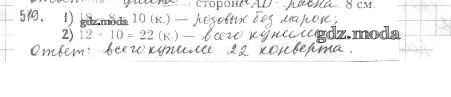 стороны AD равна 8 см.
519. 1) gdz.moda 10 (к.) — розовых без марок;
2) 12 + 10 = 22 (к) — всего купили gdz.moda
Ответ: всего купили 22 конверта.